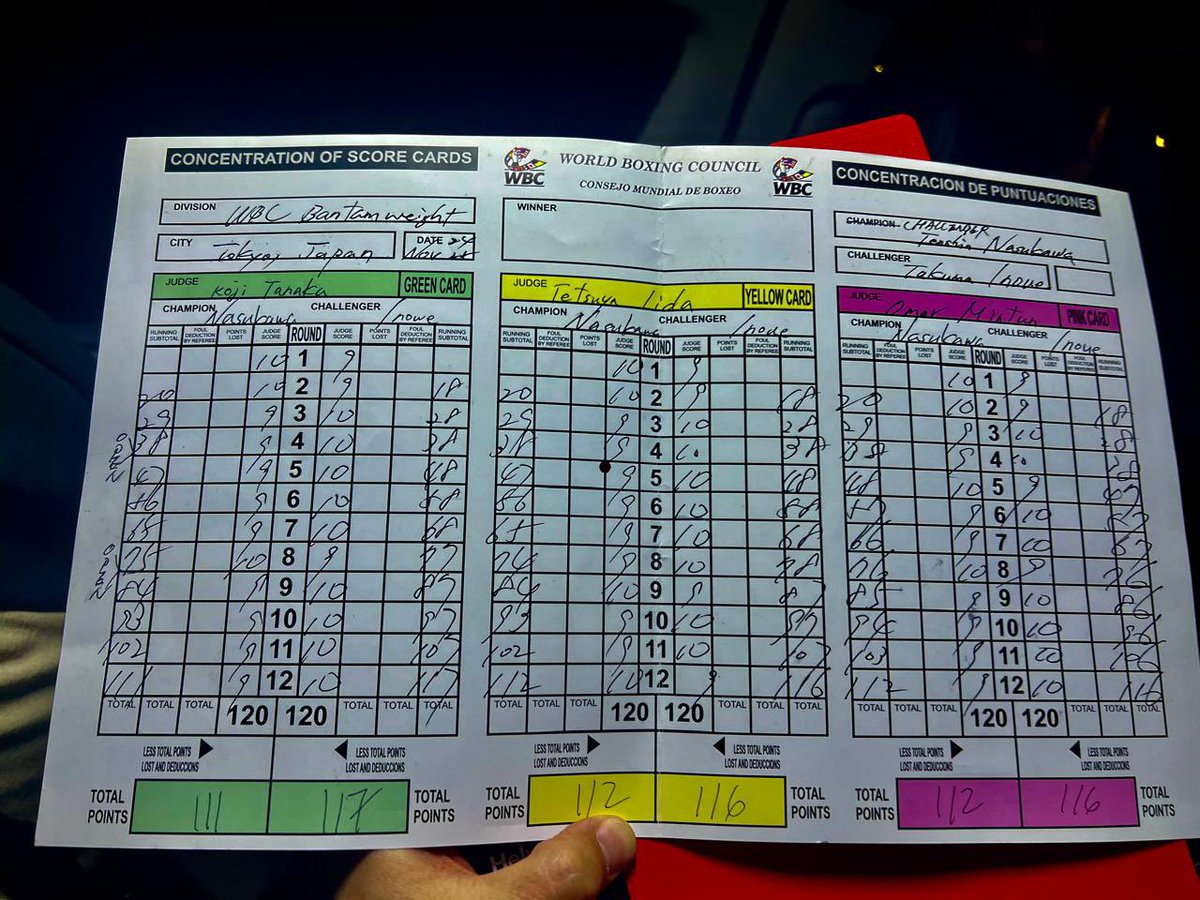 CONCENTRATION OF SCORE CARDS
WBC
WORLD BOXING COUNCIL
CONSEJO MUNDIAL DE BOXEO
WBC
CONCENTRACION DE PUNTUACIONES
DIVISION WBC Bantamweight
CITY Tokyo, Japan
DATE 24 Nov
WINNER
CHAMPION CHALLENGER Tenshin Nasukawa
CHALLENGER Takuma Inoue
JUDGE Koji Tanaka GREEN CARD
CHAMPION Nasukawa CHALLENGER Inoue
RUNNING SUBTOTAL FOUL DEDUCTION BY REFEREE POINTS LOST JUDGE SCORE ROUND JUDGE SCORE POINTS LOST FOUL DEDUCTION BY REFEREE RUNNING SUBTOTAL
10 1 9
20 10 2 9 18
29 9 3 10 28
38 9 4 10 38
47 9 5 10 48
56 9 6 10 58
65 9 7 10 68
75 10 8 9 77
84 9 9 10 87
93 9 10 10 97
102 9 11 10 107
111 9 12 10 117
TOTAL TOTAL TOTAL 120 120 TOTAL TOTAL TOTAL
LESS TOTAL POINTS LOST AND DEDUCCIONS
LESS TOTAL POINTS LOST AND DEDUCCIONS
TOTAL POINTS 111 117 TOTAL POINTS
JUDGE Tetsuya Iida YELLOW CARD
CHAMPION Nasukawa CHALLENGER Inoue
RUNNING SUBTOTAL FOUL DEDUCTION BY REFEREE POINTS LOST JUDGE SCORE ROUND JUDGE SCORE POINTS LOST FOUL DEDUCTION BY REFEREE RUNNING SUBTOTAL
10 1 9
20 10 2 9 18
29 9 3 10 28
38 9 4 10 38
47 9 5 10 48
56 9 6 10 58
65 9 7 10 68
74 9 8 10 78
84 10 9 9 87
93 9 10 10 97
102 9 11 10 107
112 10 12 9 116
TOTAL TOTAL TOTAL 120 120 TOTAL TOTAL TOTAL
LESS TOTAL POINTS LOST AND DEDUCCIONS
LESS TOTAL POINTS LOST AND DEDUCCIONS
TOTAL POINTS 112 116 TOTAL POINTS
JUDGE Omar Mintun PINK CARD
CHAMPION Nasukawa CHALLENGER Inoue
RUNNING SUBTOTAL FOUL DEDUCTION BY REFEREE POINTS LOST JUDGE SCORE ROUND JUDGE SCORE POINTS LOST FOUL DEDUCTION BY REFEREE RUNNING SUBTOTAL
10 1 9
20 10 2 9 18
29 9 3 10 28
38 9 4 10 38
48 10 5 9 47
57 9 6 10 57
66 9 7 10 67
76 10 8 9 76
85 9 9 10 86
94 9 10 10 96
103 9 11 10 106
112 9 12 10 116
TOTAL TOTAL TOTAL 120 120 TOTAL TOTAL TOTAL
LESS TOTAL POINTS LOST AND DEDUCCIONS
LESS TOTAL POINTS LOST AND DEDUCCIONS
TOTAL POINTS 112 116 TOTAL POINTS